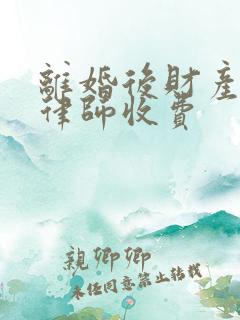 離婚後財產
律師收費
親卿卿
未任同意禁止轉載